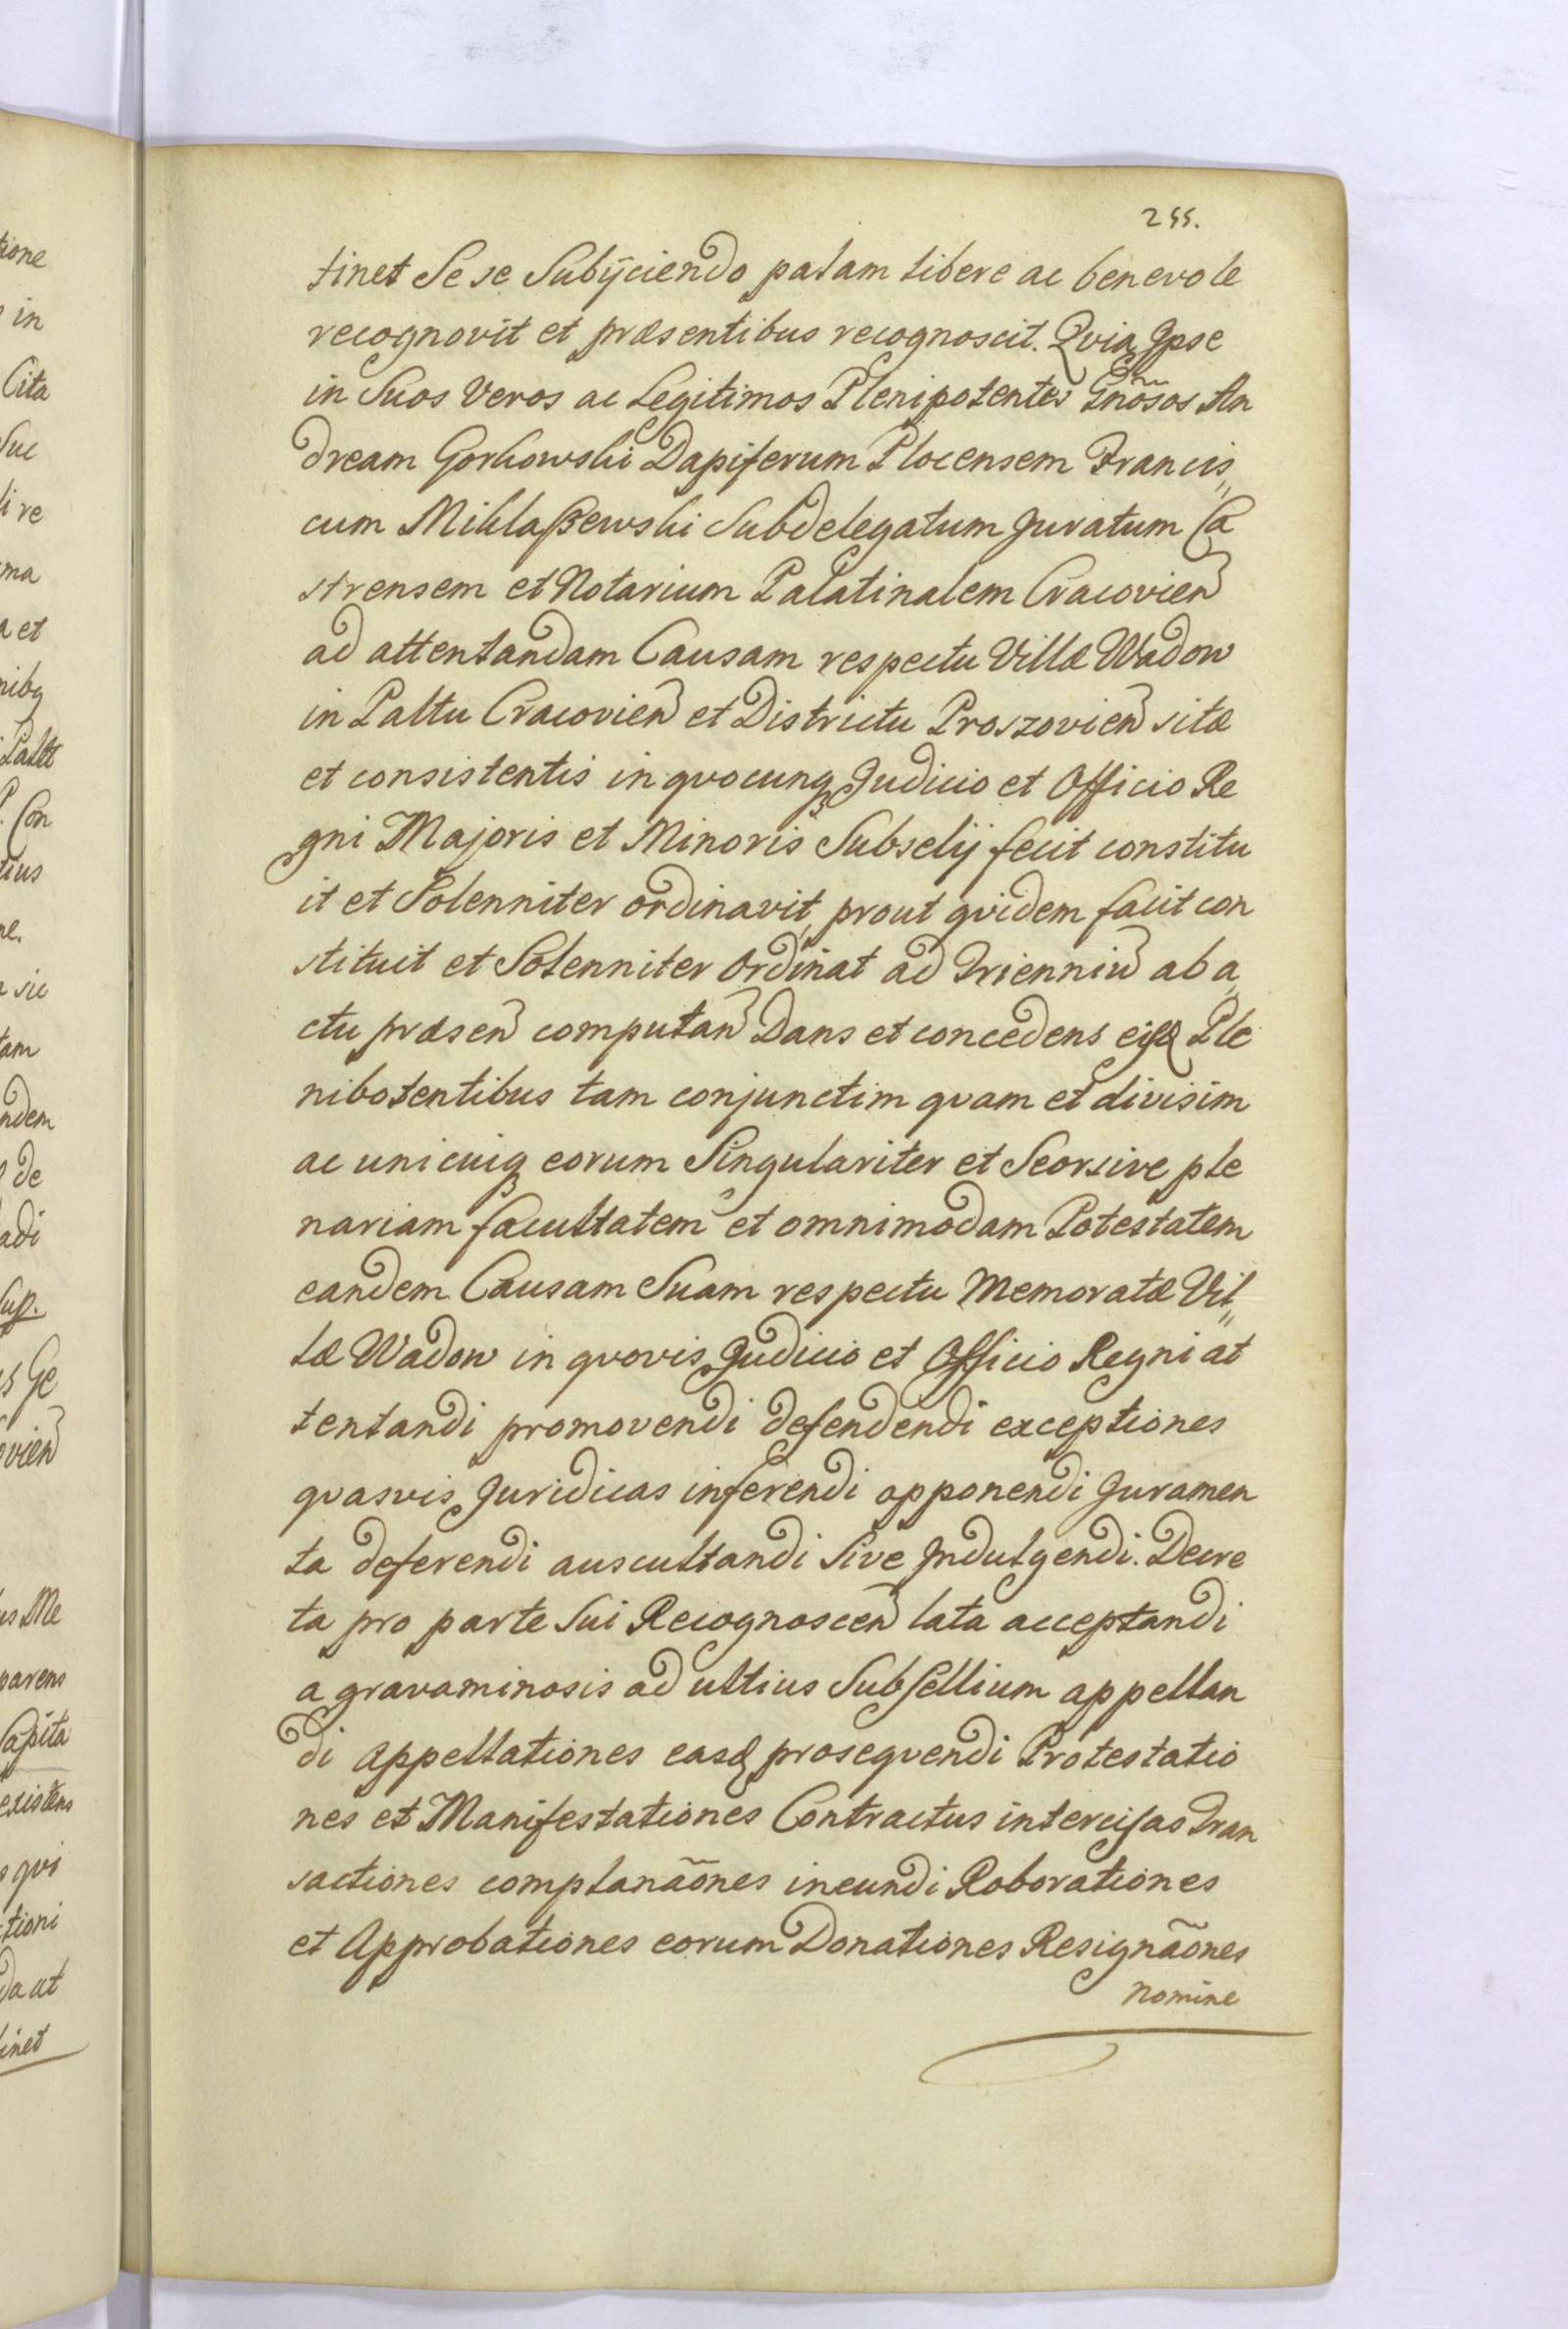 255.
tinet Se se Subijciendo palam libere ac benevole
recognovit et præsentibus recognoscit. Qvia Ipse
in Suos Veros ac Legitimos Plenipotentes Gnõsos An
dream Gorkowski Dapiferum Plocensem Francis„
cum Miklaßewski Subdelegatum Juratum Ca
strensem et Notarium Palatinalem Cracovien
ad attentandam Causam respectu Villæ Wadow
in Paltu Cracovien et Districtu Proszovien sitæ
et consistentis in qvocunq Judicio et Officio Re
gni Majoris et Minoris Subselij fecit constitu
it et Solenniter ordinavit, prout qvidem facit con
stituit et Solenniter Ordinat ad Triennium ab a„
ctu præsen computan Dans et concedens eisd Ple
nibotentibus tam conjunctim qvam et divisim
ac unicuiq eorum Singulariter et Seorsive ple
nariam facultatem et omnimodam Potestatem
eandem Causam Suam respectu Memoratæ Vil„
læ Wadow in qvovis Judicio et Officio Regni at
tentandi promovendi defendendi exceptiones
qvasvis Juridicas inferendi opponendi Juramen
ta deferendi auscultandi Sive Indulgendi. Decre
ta pro parte Sui Recognoscen lata acceptandi
a gravaminosis ad ultius Subsellium appellan
di Appellationes easq proseqvendi Protestatio
nes et Manifestationes Contractus intercisas Tran
sactiones complanãones ineundi Roborationes
et Approbationes eorum Donationes Resignãones
nomine